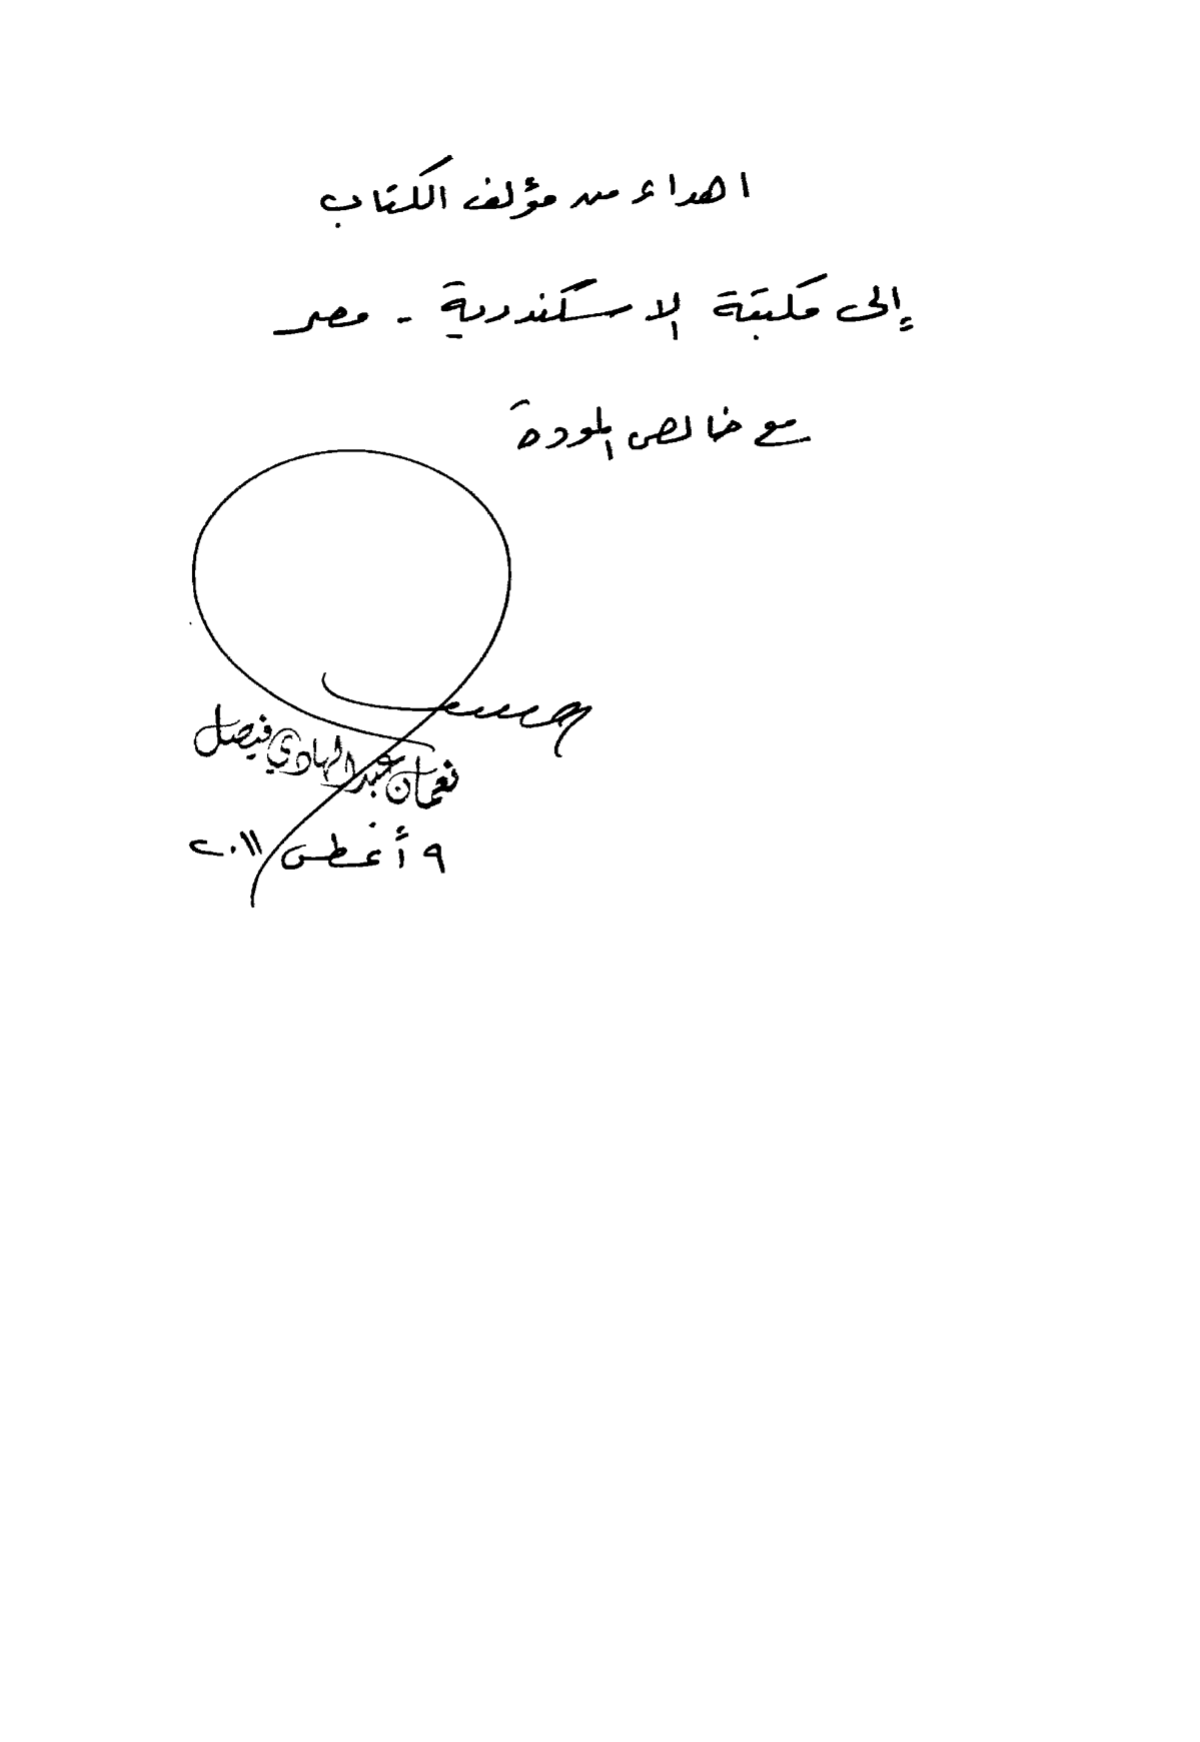 اهداء من مؤلف الكتاب
إلى مكتبة الاسكندرية - مصر
مع خالص المودة
نعمان عبد الهادي فيصل
٩ أغطس ٢٠١١